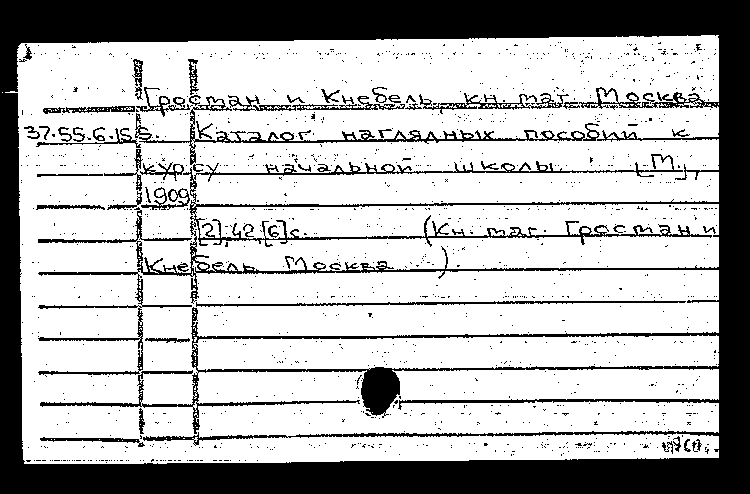 Гростан и Кнебель, кн. маг. Москва
37.55.6.15 5. Каталог наглядных пособий к
курсу начальной школы. [М.],
1909.
[2],42,[6]с. (Кн. маг. Гростан и
Кнебель Москва ).